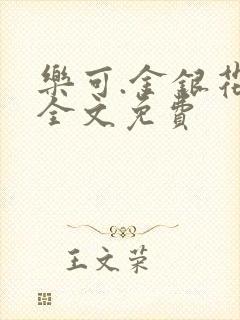 樂可.金銀花
全文免費
王文荣